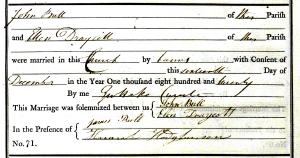 John Bull of this Parish
and Ellen Draycott of this Parish
were married in this Church by banns with Consent of
this Day of
December in the Year One thousand eight hundred and twenty
By me Curate
This Marriage was solemnized between us John Bull
Ellen Draycott
In the Presence of James Bull
No. 71.